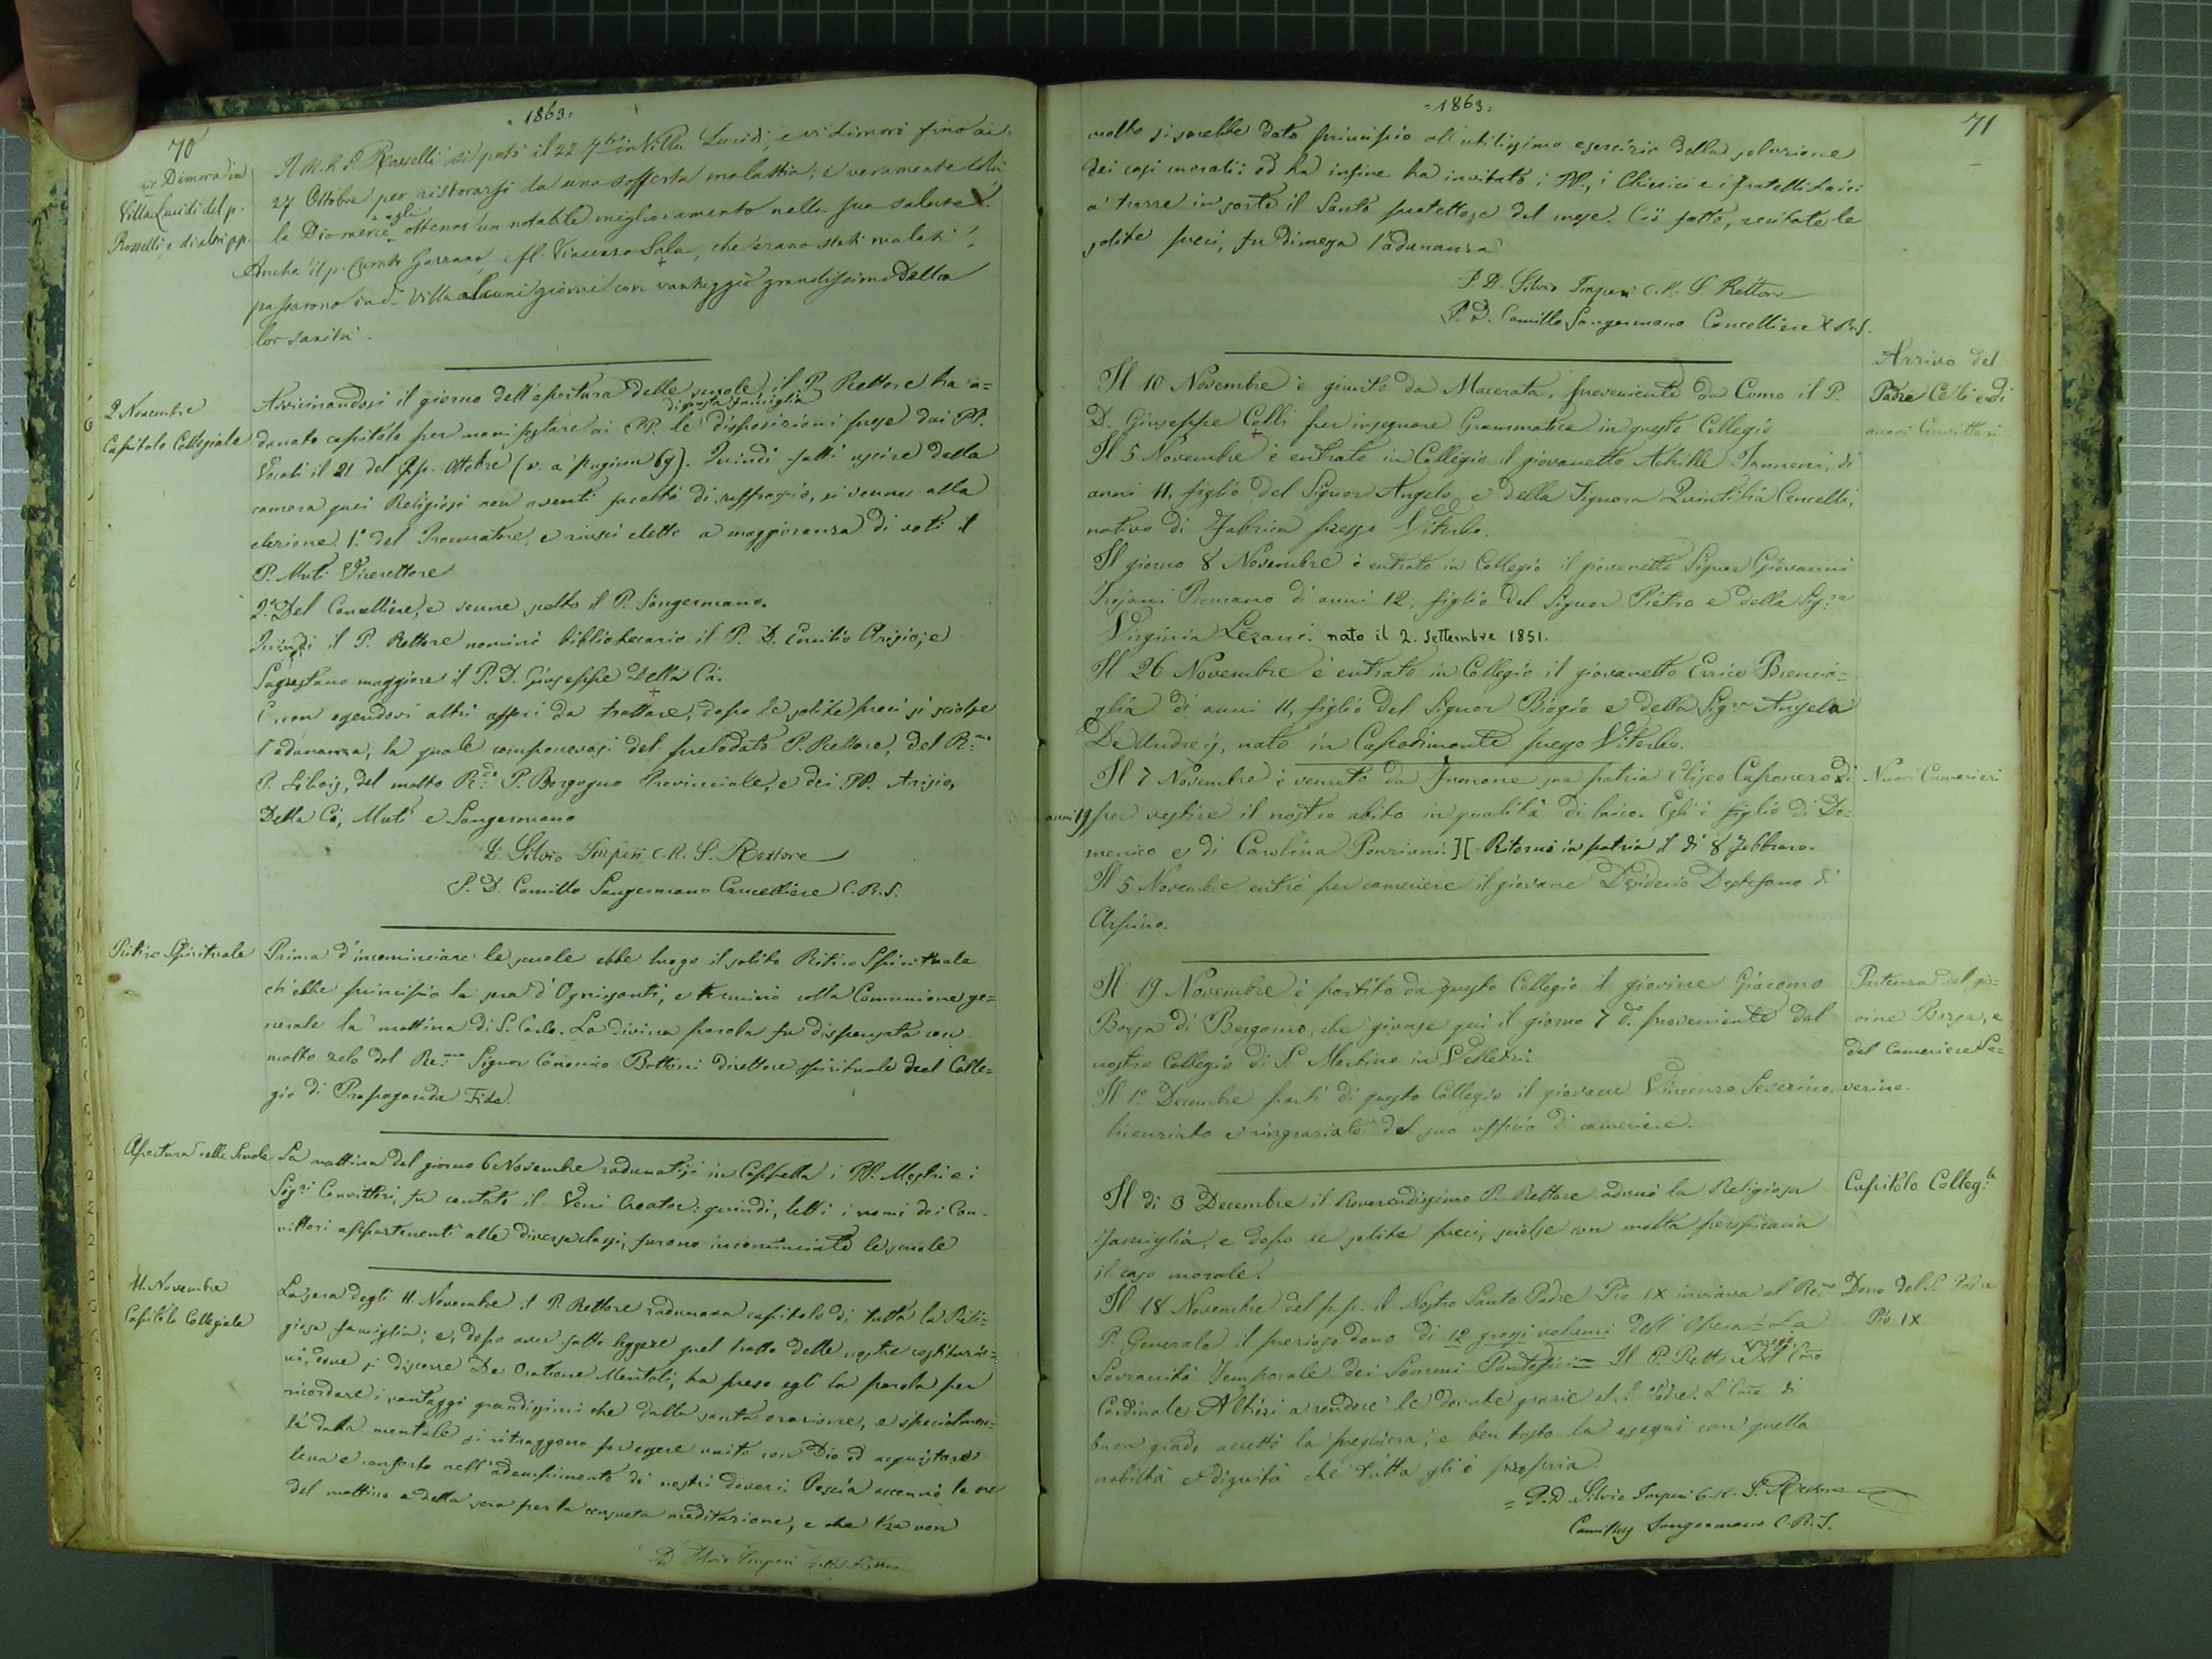 70
= 1863 =
Dimora in
Villa Lucidi del p.
Rosselli, e di altri pp.
Il M. R. P. Rosselli si portò il 22 7bre in Villa Lucidi, e vi dimorò fino ai
27 Ottobre per ristorarsi da una sofferta malattia; e veramente colà
la Dio mercè egli ottenne un notabile miglioramento nella sua salute.
Anche il p. Curato Gazzano, e fl. Vincenzo Sala, che erano stati malati,
passarono in da Villa alcuni giorni con vantaggio grandissimo della
lor sanità.
2 Novembre
Capitolo Collegiale
Avvicinandosi il giorno dell'apertura delle scuole, il P. Rettore ha a=
dunato capitolo per manifestare ai PP. di questa famiglia le disposizioni prese dai PP.
Vocali il 21 del p.p. Ottobre (v. a pagina 69). Quindi fatti uscire dalla
camera quei Religiosi non aventi facoltà di suffragio, si venne alla
elezione 1.° del Procuratore, e riuscì eletto a maggioranza di voti il
P. Muti Vicerettore
2.° Del Cancelliere, e venne scelto il P. Sangermano.
Quindi il P. Rettore nominò bibliotecario il P. D. Emilio Arisio, e
Sagrestano maggiore il P. D. Giuseppe Della Cà.
E non essendovi altri affari da trattare, dopo le solite preci si sciolse
l'adunanza, la quale componevasi del prelodato P. Rettore, del R.mo
P. Libois, del molto R.do P. Borgogno Provinciale, e dei PP. Arisio,
Della Cà, Muti e Sangermano
D. Silvio Imperi C. R. S. Rettore
P. D. Camillo Sangermano Cancelliere C. R. S.
Ritiro Spirituale
Prima d'incominciare le scuole ebbe luogo il solito Ritiro Spirituale
ch'ebbe principio la sera d'Ognissanti, e terminò colla Comunione ge=
nerale la mattina di S. Carlo. La divina parola fu dispensata con
molto zelo dal Re.mo Signor Canonico Bottoni direttore spirituale del Colle=
gio di Propaganda Fide.
Apertura delle Scuole
La mattina del giorno 6 Novembre radunatisi in Cappella i PP. Maestri e i
Sig.ri Convittori, fu cantato il Veni Creator: quindi, letti i nomi dei Con=
vittori appartenenti alle diverse classi, furono incominciate le scuole
11. Novembre
Capitolo Collegiale
La sera degli 11. Novembre il P. Rettore radunava capitolo di tutta la Reli=
giosa famiglia; e, dopo aver fatto leggere quel tratto delle nostre costituzio=
ni, dove si discorre De Oratione Mentali, ha preso egli la parola per
ricordare i vantaggi grandissimi che dalla santa orazione, e specialmen=
te dalla mentale si ritraggono per essere unito con Dio ed acquistare
lena e conforto nell'adempimento di nostri doveri. Poscia accennò le ore
del mattino e della sera per la consueta meditazione, e che tra non
D. Silvio Imperi C.R.S. Rettore
= 1863 =
71
molto si sarebbe dato principio all'utilissimo esercizio della soluzione
dei casi morali: ed ha infine ha invitato i PP., i Chierici e i fratelli laici
a trarre in sorte il Santo protettore del mese. Ciò fatto, recitate le
solite preci, fu dimessa l'adunanza
P. D. Silvio Imperi C. R. S. Rettore
P. D. Camillo Sangermano Cancelliere C. R. S.
Arrivo del
Padre Celli e di
nuovi Convittori
Il 10 Novembre è giunto da Macerata, proveniente da Como il P.
D. Giuseppe Celli per insegnare Grammatica in questo Collegio
Il 5 Novembre è entrato in Collegio il giovanetto Achille Jannoni, di
anni 11, figlio del Signor Angelo e della Signora Quintilia Cencelli,
nativo di Fabrica presso Viterbo.
Il giorno 8 Novembre è entrato in Collegio il giovanetto Signor Giovanni
Trojani Romano di anni 12, figlio del Signor Pietro e della Sig.ra
Virginia Lezani. nato il 2. Settembre 1851.
Il 26 Novembre è entrato in Collegio il giovanetto Errico Brencia=
glia di anni 11, figlio del Signor Biagio e della Sig.ra Angela
De Andreis, nato in Capodimonte presso Viterbo.
Nuovi Camerieri
Il 7 Novembre è venuto da Fumone sua patria Eliseo Caponero di
anni 19 per vestire il nostro abito in qualità di laico. Egli è figlio di Do=
menico e di Carolina Ponziani.][ Ritornò in patria il dì 8 Febbraro.
Il 5 Novembre entrò per cameriere il giovane Desiderio Destefano di
Arpino.
Partenza del gio=
vine Borsa, e
del Cameriere Se=
verino.
Il 19 Novembre è partito da questo Collegio il giovine Giacomo
Borsa di Bergamo, che giunse qui il giorno 7 d.° proveniente dal
nostro Collegio di S. Martino in Velletri.
Il 1.° Decembre partì di questo Collegio il giovane Vincenzo Severino,
licenziato e ringraziato del suo uffizio di cameriere.
Capitolo Colleg.le
Il dì 3 Decembre il Reverendissimo P. Rettore adunò la Religiosa
Famiglia, e dopo le solite preci, sciolse con molta perspicacia
il caso morale.
Dono del S. Padre
Pio IX
Il 18 Novembre del p.p. il Nostro Santo Padre Pio IX inviava al Re.mo
P. Generale il prezioso dono di 12 grossi volumi dell'Opera = La
Sovranità Temporale dei Sommi Pontefici = Il P. Rettore pregò l'Emo
Cardinale Altieri a rendere le dovute grazie al S. Padre. L'Emo di
buon grado accettò la preghiera, e ben tosto la eseguì con quella
nobiltà e dignità che tutta gli è propria.
= P. D. Silvio Imperi C. R. S. Rettore
Camillus Sangermano C. R. S.